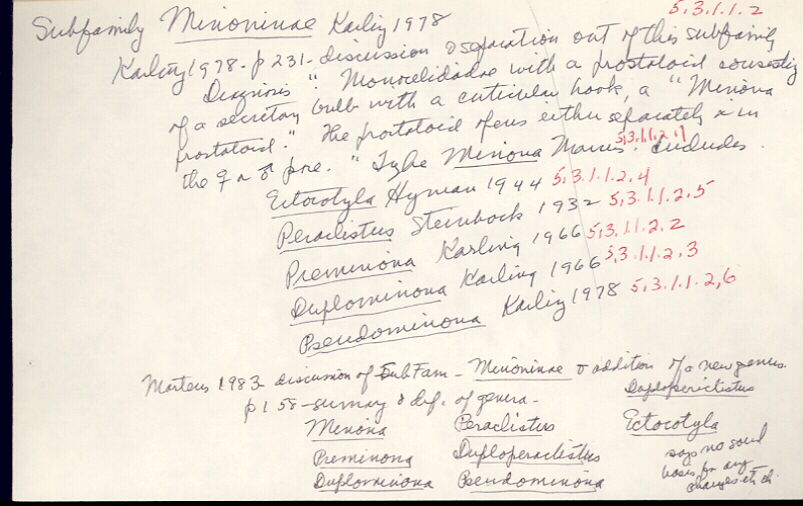 5.3.1.1.2
Subfamily Minoninae Karling 1978
Karling 1978 - p 231 - discussion & separation out of this subfamily
Diagnosis "Monocelididae with a prostatoid consisting
of a secretory bulb with a cuticular hook, a "Minona
prostatoid." The prostatoid opens either separately or in
the ♀ or ♂ pore." Type Minona Marcus. Includes 5.3.1.1.2.1
Ectocotyla Hyman 1944 5.3.1.1.2.4
Peraclistus Steinbock 1932 5.3.1.1.2.5
Preminona Karling 1966 5.3.1.1.2.2
Duplominona Karling 1966 5.3.1.1.2.3
Pseudominona Karling 1978 5.3.1.1.2.6
Martens 1983 - discussion of SubFam - Minoninae & addition of a new genus.
Duploperaclistus
p 158 - summary & dif. of genera -
Minona Peraclistus Ectocotyla
Preminona Duploperaclistus says no good
Duplominona Pseudominona basis for any
changes